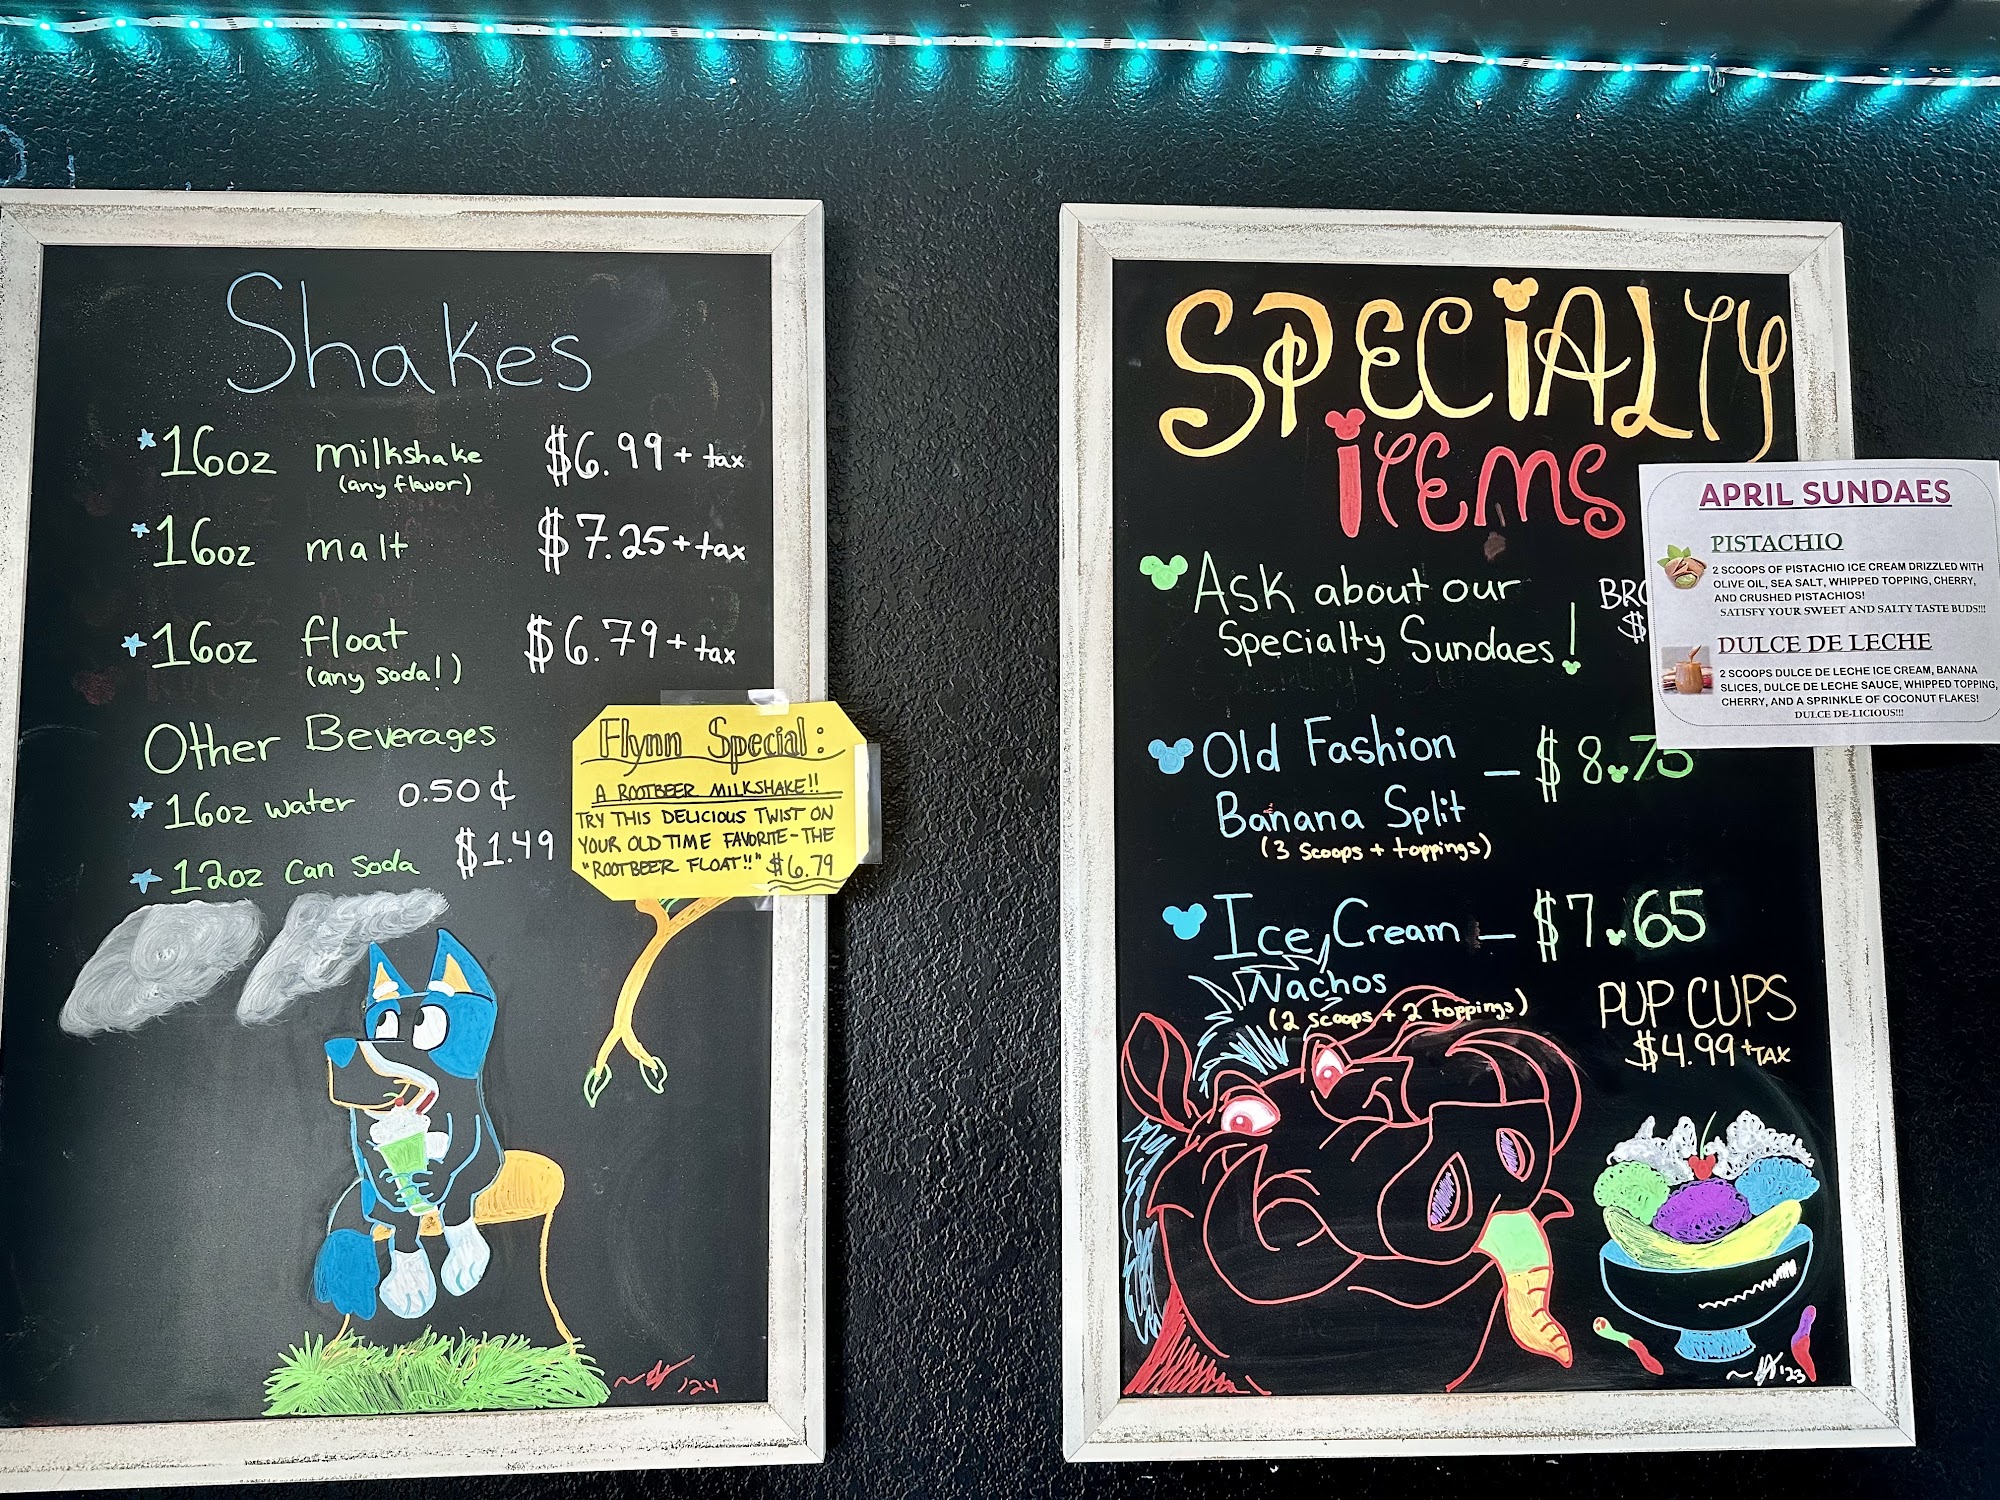 Shakes
16oz milkshake $6.99 + tax
(any flavor)
16oz malt $7.25 + tax
16oz float $6.79 + tax
(any soda!)
Other Beverages
16oz water 0.50¢
12oz can soda $1.49
Flynn Special:
A ROOTBEER MILKSHAKE!!
TRY THIS DELICIOUS TWIST ON
YOUR OLD TIME FAVORITE - THE
"ROOTBEER FLOAT!!" $6.79
'24
SPECIALTY
ITEMS
Ask about our
Specialty Sundaes!
Old Fashion
Banana Split — $8.75
(3 scoops + toppings)
Ice Cream — $7.65
Nachos
(2 scoops + 2 toppings)
PUP CUPS
$4.99 + TAX
'23
APRIL SUNDAES
PISTACHIO
2 SCOOPS OF PISTACHIO ICE CREAM DRIZZLED WITH
OLIVE OIL, SEA SALT, WHIPPED TOPPING, CHERRY,
AND CRUSHED PISTACHIOS!
SATISFY YOUR SWEET AND SALTY TASTE BUDS!!!
DULCE DE LECHE
2 SCOOPS DULCE DE LECHE ICE CREAM, BANANA
SLICES, DULCE DE LECHE SAUCE, WHIPPED TOPPING,
CHERRY, AND A SPRINKLE OF COCONUT FLAKES!
DULCE DE-LICIOUS!!!